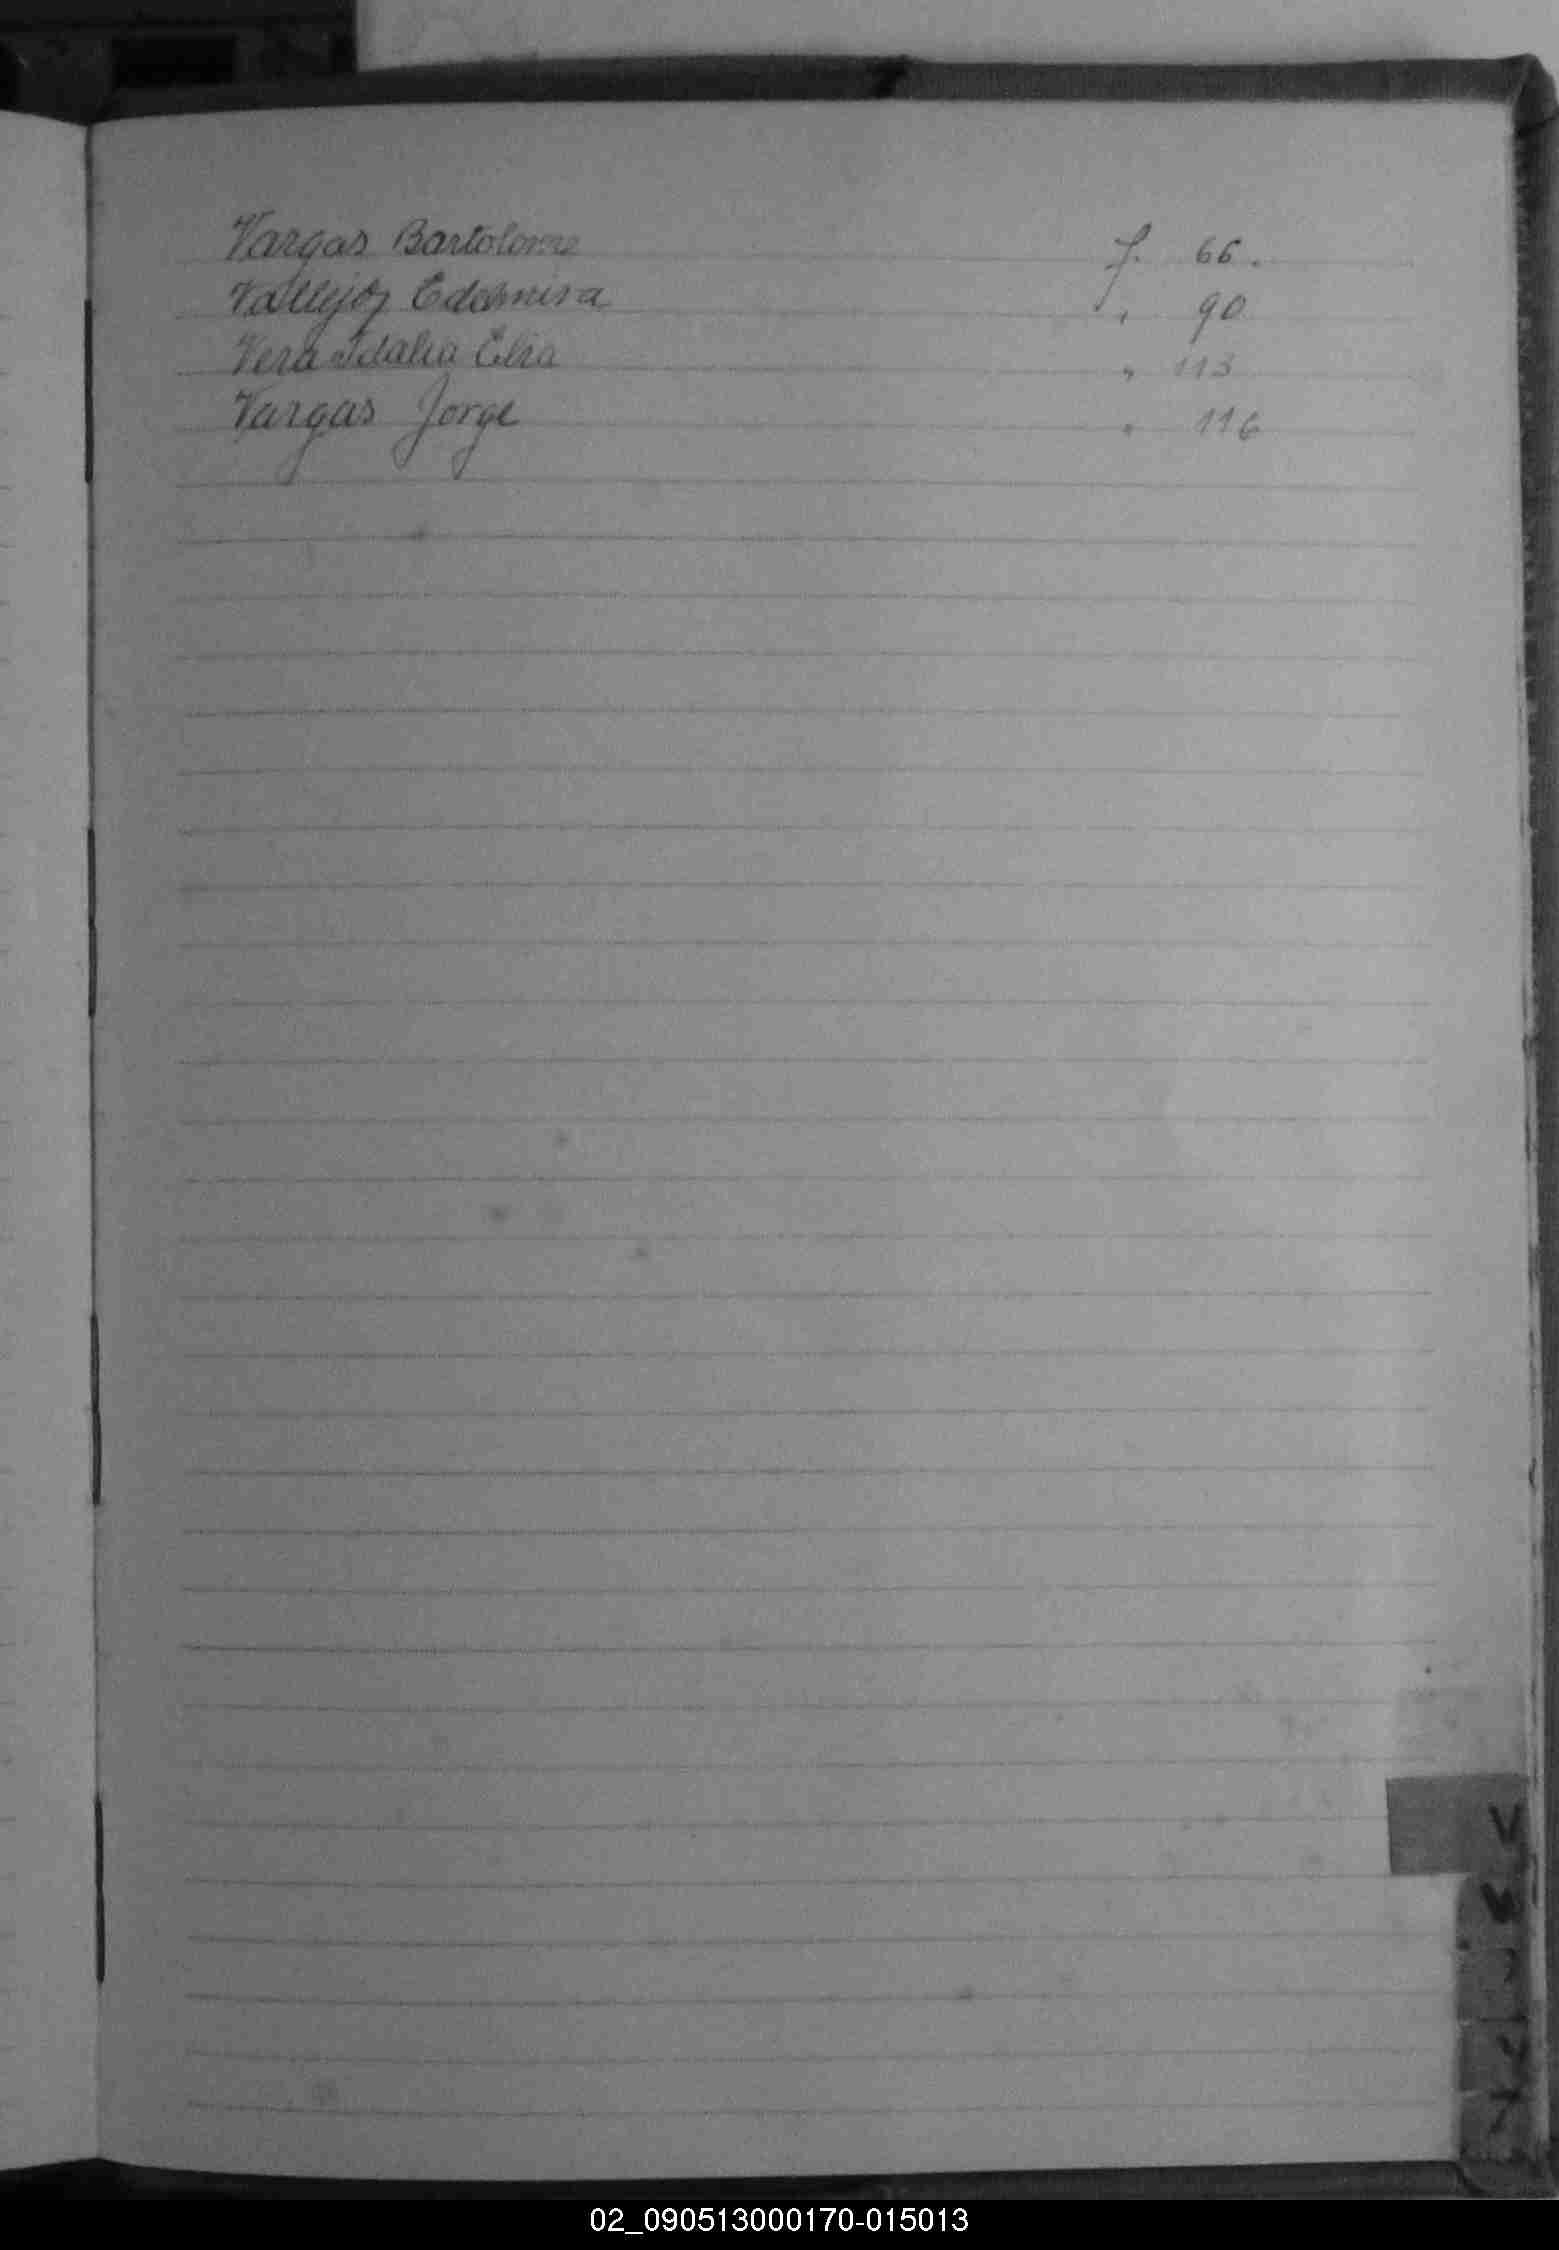 Vargas Bartolome f. 66.
Vallejos Edelmira " 90
Vera Idalia Elia " 113
Vargas Jorge " 116
V
W
Y
Z
02_090513000170-015013